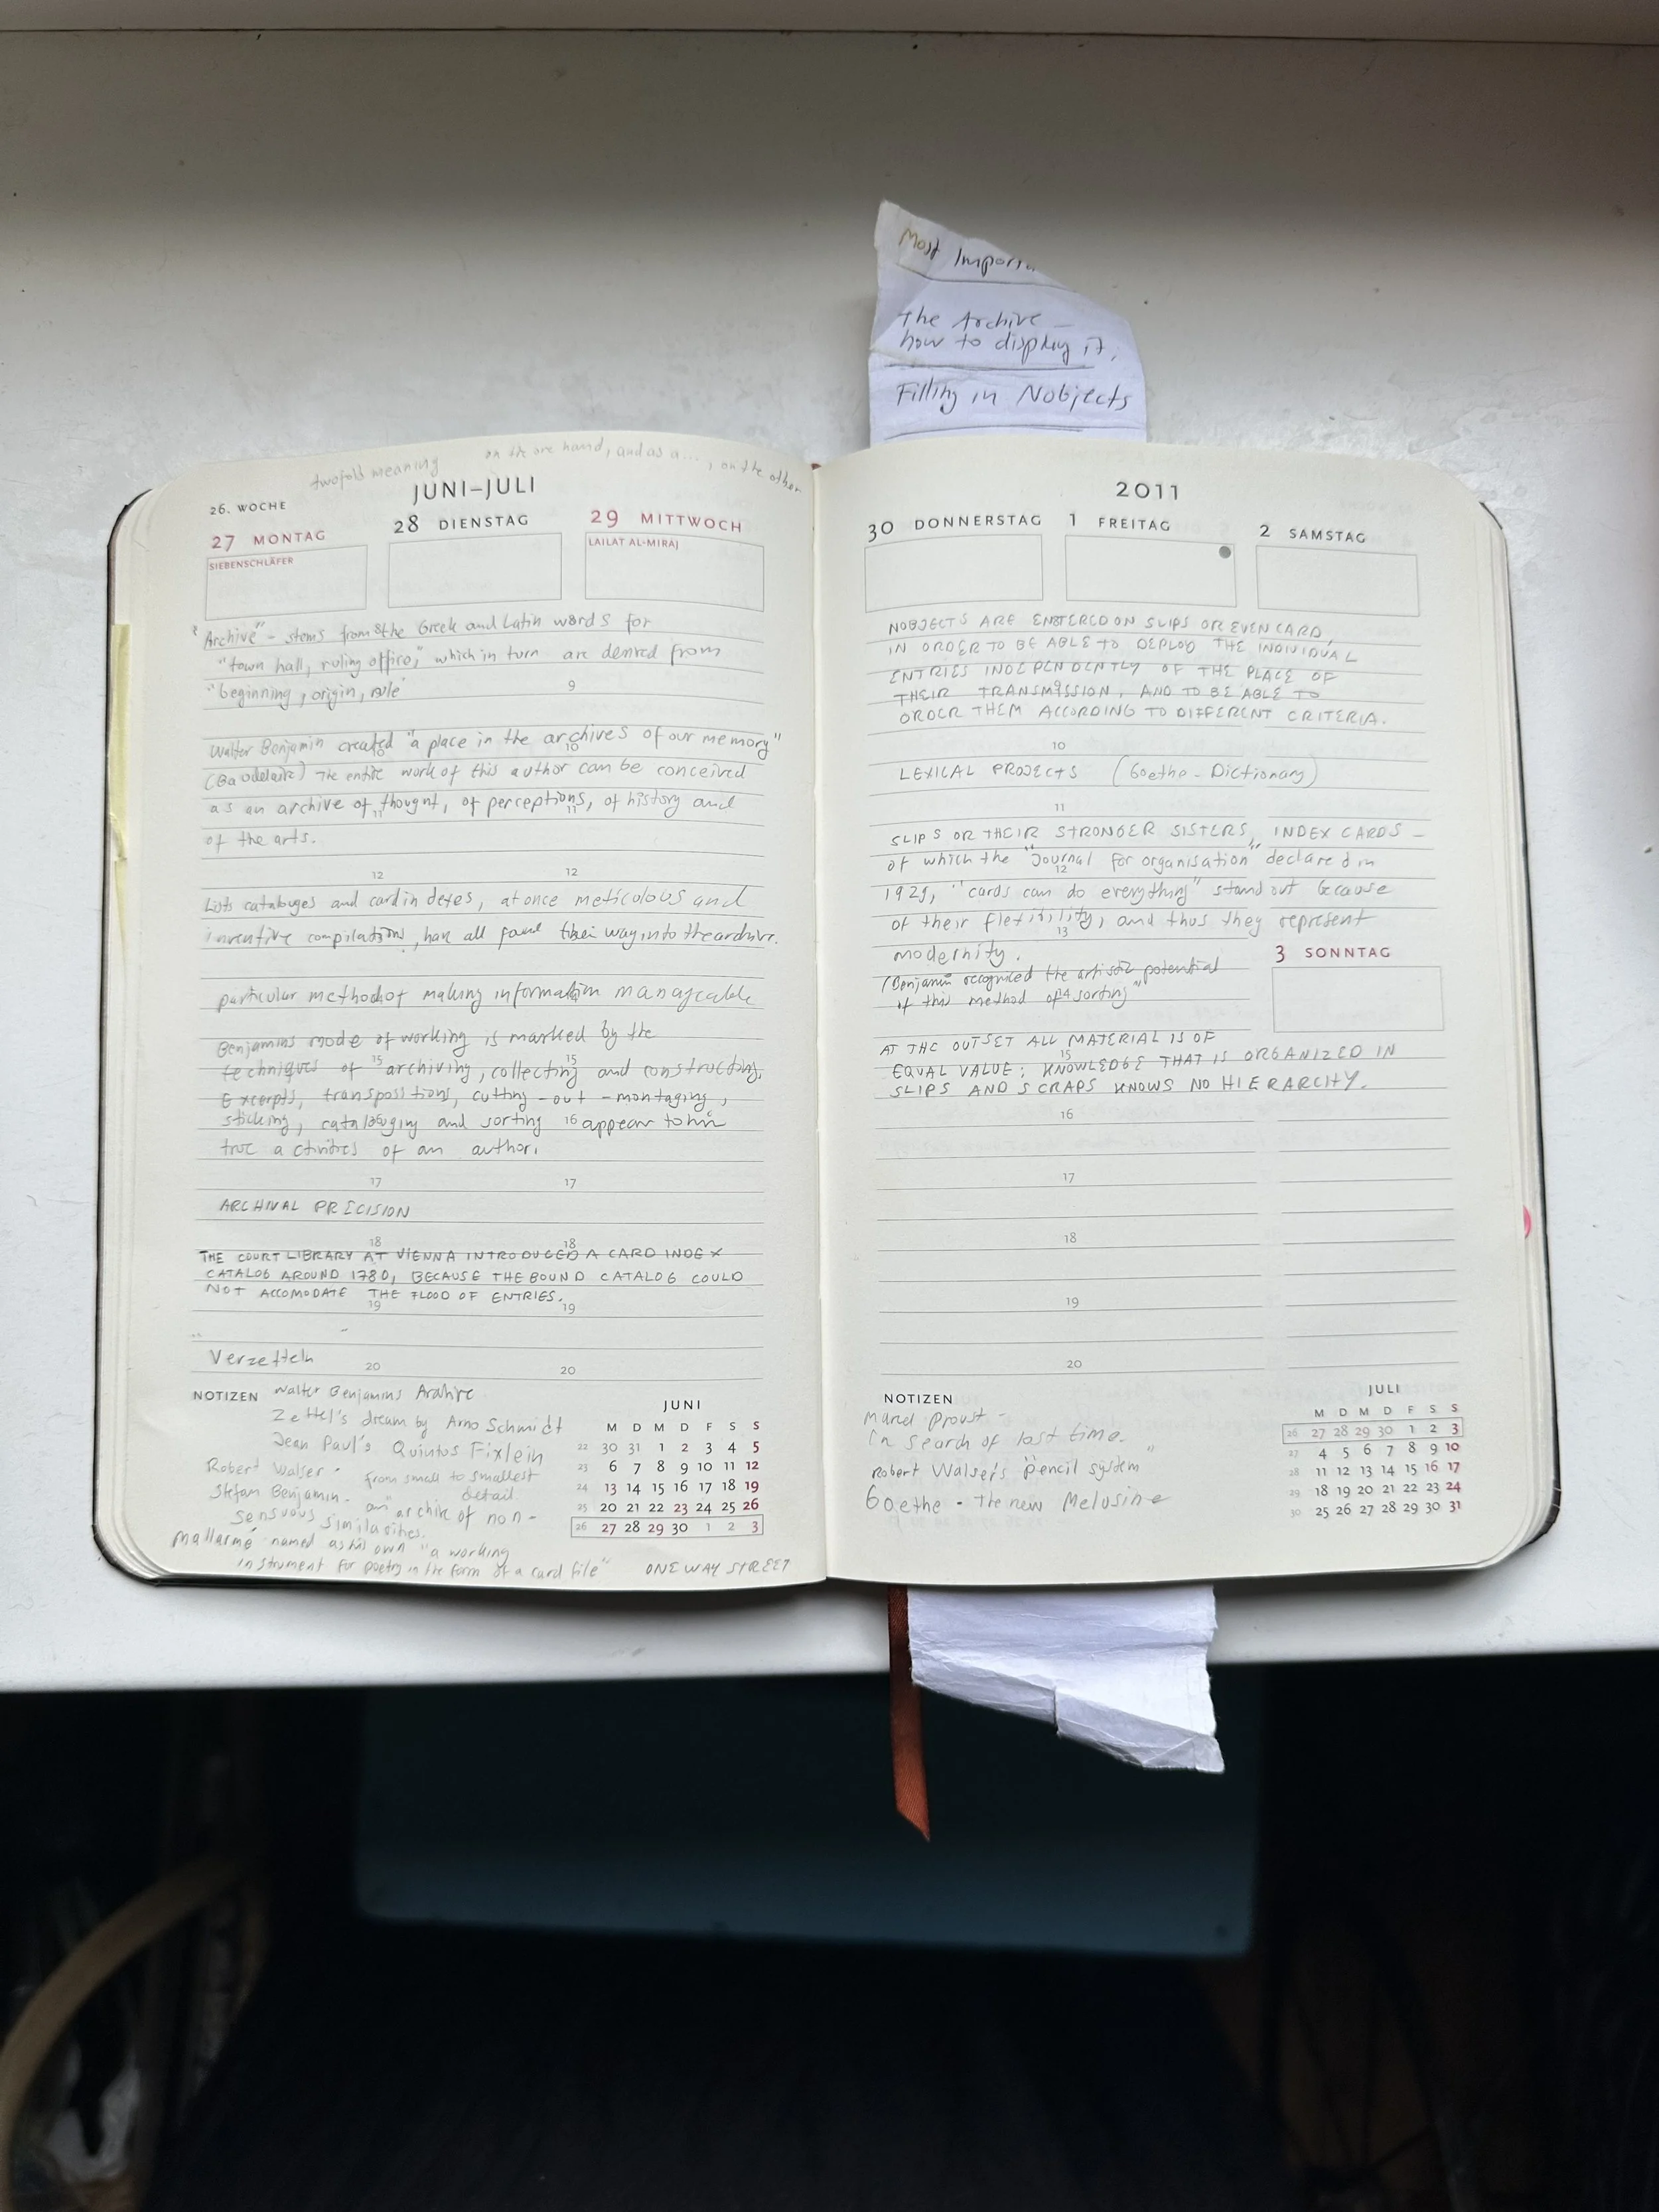 Most Importa
The Archive –
how to display it,
Filling in Nobjects
on the one hand, and as a ..., on the other
twofold meaning
JUNI–JULI
26. WOCHE
27 MONTAG
28 DIENSTAG
29 MITTWOCH
SIEBENSCHLÄFER
LAILAT AL-MIRAJ
"Archive" – stems from the Greek and Latin words for
"town hall, ruling office," which in turn are derived from
"beginning, origin, rule"
9
Walter Benjamin created "a place in the archives of our memory"
10
(Baudelaire) The entire work of this author can be conceived
as an archive of thought, of perceptions, of history and
11 11
of the arts.
12 12
Lists catalouges and cardindexes, at once meticolous and
inventive compilations, have all found their way into the archive.
particular method of making information manageable
Benjamins mode of working is marked by the
techniques of archiving, collecting and constructing.
15 15
Excerpts, transposstions, cutting-out-montaging,
sticking, catalouging and sorting appear to him
16
true activities of an author.
17 17
ARCHIVAL PRECISION
18 18
THE COURT LIBRARY AT VIENNA INTRODUCED A CARD INDEX
CATALOG AROUND 1780, BECAUSE THE BOUND CATALOG COULD
NOT ACCOMODATE THE FLOOD OF ENTRIES.
19 19
Verzetteln
20 20
NOTIZEN
Walter Benjamins Archive
Zettel's dream by Arno Schmidt
Jean Paul's Quintus Fixlein
Robert Walser - from small to smallest
detail.
Stefan Benjamin - an archive of non-
sensuous similarities.
Mallarmé named as his own "a working
instrument for poetry in the form of a card file"
ONE WAY STREET
JUNI
M D M D F S S
22 30 31 1 2 3 4 5
23 6 7 8 9 10 11 12
24 13 14 15 16 17 18 19
25 20 21 22 23 24 25 26
26 27 28 29 30 1 2 3
2011
30 DONNERSTAG
1 FREITAG
2 SAMSTAG
NOBJECTS ARE ENTERED ON SLIPS OR EVEN CARD,
IN ORDER TO BE ABLE TO DEPLOY THE INDIVIDUAL
ENTRIES INDEPENDENTLY OF THE PLACE OF
THEIR TRANSMISSION, AND TO BE ABLE TO
9
ORDER THEM ACCORDING TO DIFFERENT CRITERIA.
10
LEXICAL PROJECTS (Goethe-Dictionary)
11
SLIPS OR THEIR STRONGER SISTERS, INDEX CARDS –
of which the "Journal for organisation" declared in
12
1929, "cards can do everything" stand out because
of their flexibility, and thus they represent
13
modernity.
3 SONNTAG
(Benjamin recognized the artistic potential
of this method of sorting"
14
AT THE OUTSET ALL MATERIAL IS OF
EQUAL VALUE; KNOWLEDGE THAT IS ORGANIZED IN
15
SLIPS AND SCRAPS KNOWS NO HIERARCHY.
16
17
18
19
20
NOTIZEN
Marcel Proust -
In search of lost time.
Robert Walser's "pencil system"
Goethe - The new Melusine
JULI
M D M D F S S
26 27 28 29 30 1 2 3
27 4 5 6 7 8 9 10
28 11 12 13 14 15 16 17
29 18 19 20 21 22 23 24
30 25 26 27 28 29 30 31